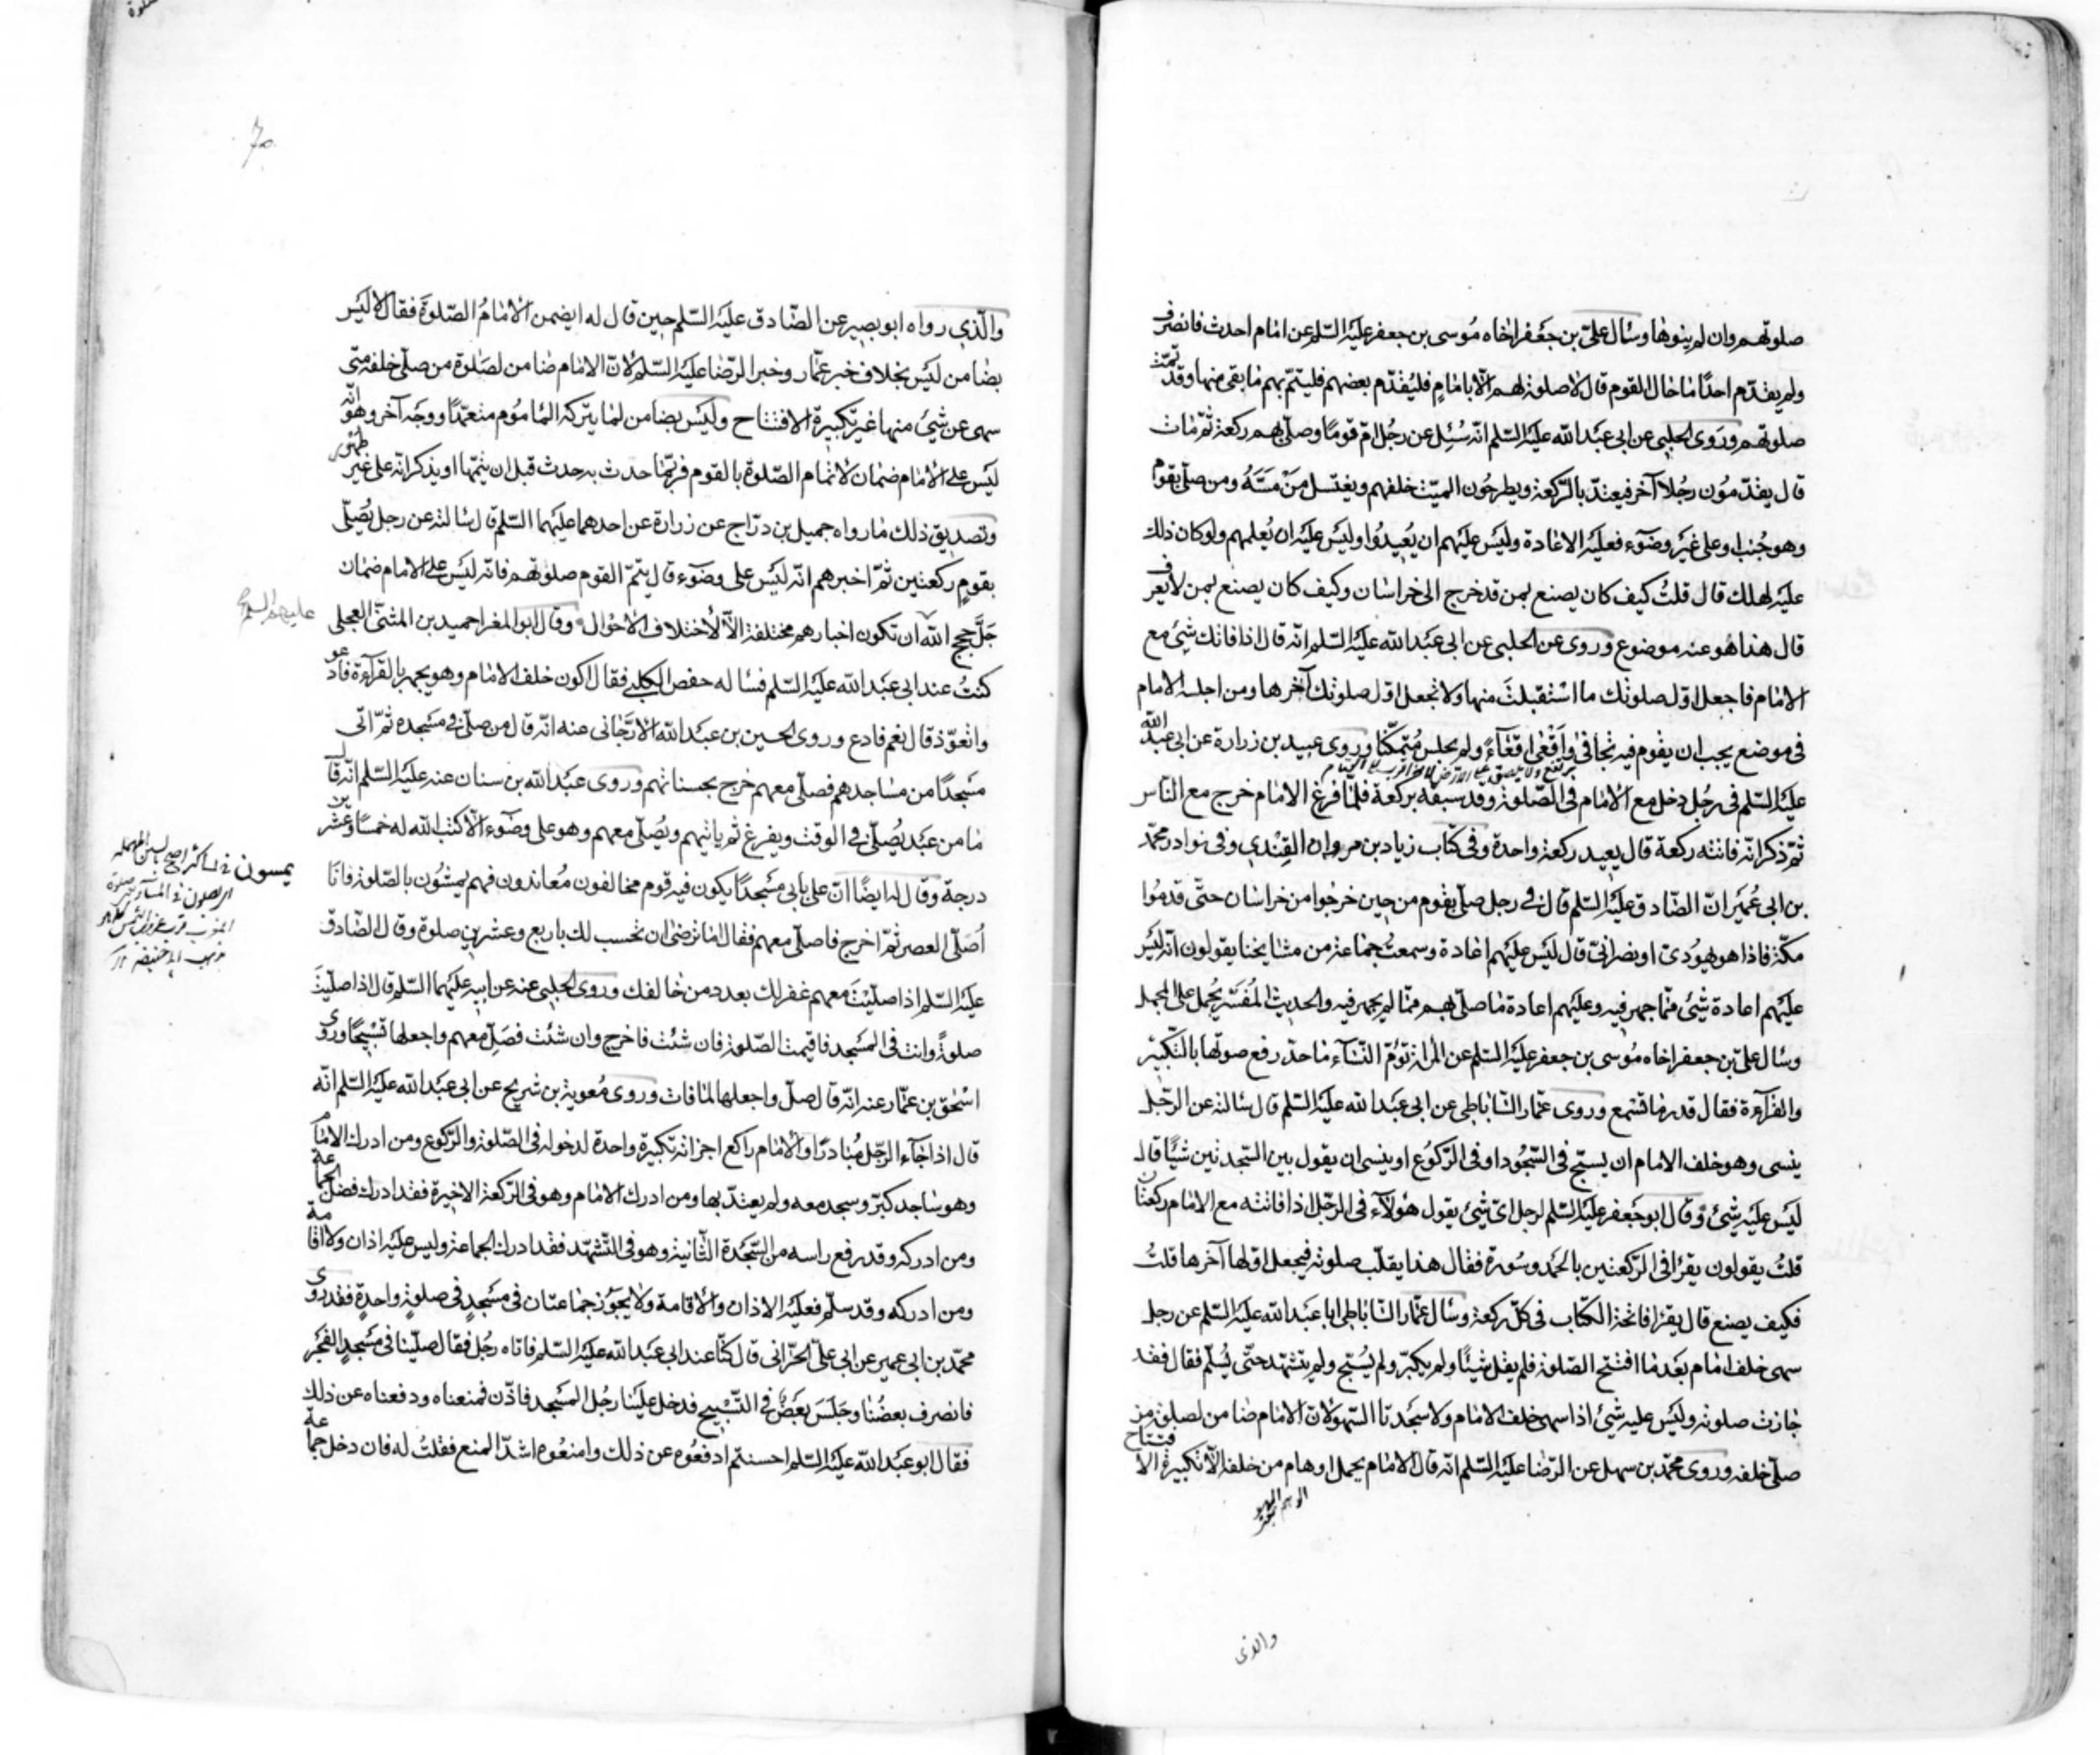 صلوتهم وان لم ينوها وسال علىّ بن جعفر اخاه مُوسى بن جعفر عليه السّلم عن امام احدث فانصرف
ولم يقدّم احدًا ما حال القوم قال لا صلوة لهم الّا بامامٍ فليُقدّم بعضهم فليتمّ بهم ما بقى منها وقد تمّت
صلوتهم ورَوى الحلبى عن ابى عبد الله عليه السّلم انّه سُئِل عن رجُل امّ قومًا وصلّى بهم ركعة ثمّ مات
قال يقدّمُون رجُلا آخر فيعتدّ بالرّكعة ويطرحُون الميّت خلفهم ويغتسل مَنْ مَسَّهُ ومن صلّى بقوم
وهو جُنب او على غير وضوء فعليه الاعادة وليس عليهم ان يُعيدُوا وليس عليه ان يُعلمهم ولو كان ذلك
عليه لهلك قال قلتُ كيف كان يصنع بمن قد خرج الى خراسان وكيف كان يصنع بمن لا يعرف
قال هذا هو عنه موضوع وروى عن الحلبى عن ابى عبد الله عليه السّلم انّه قال اذا فاتك شئ مع
الامام فاجعل اوّل صلوتك ما استقبلتَ منها ولا تجعل اوّل صلوتك آخرها ومن اجلسه الامام
فى موضع يجب ان يقوم فيه تجافىٰ واَقْعٰى اقعآءً ولم يجلس مُتمكّنًا وروى عبيد بن زرارة عن ابى عبد الله
عليه السّلم فى رجُل دخل مع الامام فى الصّلوة وقد سبقه بركعة فلمّا فرغ الامام خرج مع النّاس
ثمّ ذكر انّه فاتته ركعة قال يعيد ركعة واحدة وفى كتاب زياد بن مروان القِنْدى وفى نوادر محمّد
بن ابى عُمَير انّ الصّادق عليه السّلم قال فى رجل صلّى بقوم من حِين خرجُوا من خراسان حتّى قدمُوا
مكّة فاذا هو يهُودىّ او نصرانىّ قال ليس عليهم اعادة وسمعتُ جماعة من مشايخنا يقولون انّه ليس
عليهم اعادة شئ ممّا جهر فيه وعليهم اعادة ما صلّى بهم ممّا لم يجهر فيه والحديث المُفَسَّر يُحمل على المجمل
وسال علىّ بن جعفر اخاه مُوسى بن جعفر عليه السّلم عن المراة تؤمّ النّسآء ما حدّ رفع صوتها بالتّكبير
والقرآءة فقال قدر ما تسمع وروى عمّار السّاباطى عن ابى عبد الله عليه السّلم قال سالته عن الرّجل
ينسى وهو خلف الامام ان يسبّح فى السّجُود او فى الرّكُوع او ينسى ان يقول بين السّجدتين شيًا قال
ليس عليه شئ وقال ابو جعفر عليه السّلم لرجل اىّ شئ يقول هؤلآء فى الرّجل اذا فاتته مع الامام ركعتان
قلتُ يقولون يقرأ فى الرّكعتين بالحمد وسُورة فقال هذا يقلّب صلوته فيجعل اوّلها آخرها قلتُ
فكيف يصنع قال يقرأ فاتحة الكتاب فى كلّ ركعة وسال عمّار السّاباطى ابا عبد الله عليه السّلم عن رجل
سهى خلف امام بعد ما افتتح الصّلوة فلم يقل شيئًا ولم يكبّر ولم يُسبّح ولم يتشهّد حتّى يُسلّم فقال فقد
جازت صلوته وليس عليه شئ اذا سهى خلف الامام ولا سجدتا السّهو لانّ الامام ضامن لصلوة من
صلّى خلفه وروى محمّد بن سهل عن الرّضا عليه السّلم انّه قال الامام يحمل اوهام من خلفه الّا تكبيرة الافتتاح
والذى
والّذى رواه ابو بصير عن الصّادق عليه السّلم حين قال له ايضمن الامامُ الصّلوة فقال لا ليس
بضامن ليس بخلاف خبر عمّار وخبر الرّضا عليه السّلم لانّ الامام ضامن لصلوة من صلّى خلفه متى
سهى عن شئ منها غير تكبيرة الافتتاح وليس بضامن لما يتركه المامُوم متعمّدًا ووجه آخر وهو انّه
ليس على الامام ضمان لاتمام الصّلوة بالقوم فربّما حدث به حدث قبل ان يتمّها او يذكر انّه على غير طهور
وتصديق ذلك ما رواه جميل بن درّاج عن زرارة عن احدهما عليهما السّلم قال سالته عن رجل يُصَلّى
بقومٍ ركعتين ثمّ اخبرهم انّه ليس على وضوء قال يتمّ القوم صلوتهم فانّه ليس على الامام ضمان
جَلّ حجج الله ان تكون اخبارهم مختلفة الّا لاختلاف الاحوال وقال ابو المغرا حميد بن المثنّى العجلى
عليهم السلم
كنتُ عند ابى عبد الله عليه السّلم فساله حفص الكلبى فقال اكون خلف الامام وهو يجهر بالقرآءة فادعو
واتعوّذ قال نعم فادع وروى الحسين بن عبد الله الارّجانى عنه انّه قال من صلّى فى مسجده ثمّ اتى
مسجدًا من مساجدهم فصلّى معهم خرج بحسناتهم وروى عبد الله بن سنان عنه عليه السّلم انّه قال
ما من عبد يُصلّى فى الوقت ويفرغ ثم ياتيهم ويُصلّى معهم وهو على وضوء الّا كتب الله له خمسًا وعشرين
درجة وقال له ايضًا انّ على بابى مسجدًا يكون فيه قوم مخالفون مُعاندون فهم يمسُون بالصّلوة فانا
اُصَلّى العصر ثمّ اخرج فاصلّى معهم فقال اما ترضىٰ ان تحسب لك باربع وعشرين صلوة وقال الصّادق
عليه السّلم اذا صلّيتَ معهم غفر لك بعدد من خالفك وروى الحلبى عنه عن ابيه عليهما السّلم قال اذا صلّيتَ
صلوةً وانت فى المسجد فاقيمت الصّلوة فان شئت فاخرج وان شئت فصَلّ معهم واجعلها تسبيحًا وروى
اسحٰق بن عمّار عنه انّه قال صلّ واجعلها لما فات وروى مُعوية بن شريح عن ابى عبد الله عليه السّلم انّه
قال اذا جآء الرّجل مُبادرًا والامام راكع اجزاته تكبيرة واحدة لدخوله فى الصّلوة والرّكوع ومن ادرك الامام
وهو ساجد كبّر وسجد معه ولم يعتدّ بها ومن ادرك الامام وهو فى الرّكعة الاخيرة فقد ادرك فضل الجماعة
ومن ادركه وقد رفع راسه من السّجدة الثّانية وهو فى التّشهّد فقد ادرك الجماعة وليس عليه اذان ولا اقامة
ومن ادركه وقد سلّم فعليه الاذان والاقامة ولا يجوز جماعتان فى مسجدٍ فى صلوةٍ واحدةٍ فقد روى
محمّد بن ابى عمير عن ابى علىّ الحرّانى قال كنّا عند ابى عبد الله عليه السّلم فاتاه رجُل فقال صلّينا فى مسجدٍ الفجر
فانصرف بعضُنا وجَلَسَ بعضٌ فى التّسبيح فدخل علينا رجُل المسجد فاذّن فمنعناه ودفعناه عن ذلك
فقال ابو عبد الله عليه السّلم احسنتم ادفعُوه عن ذلك وامنعُوه اشدّ المنع فقلتُ له فان دخل جماعة